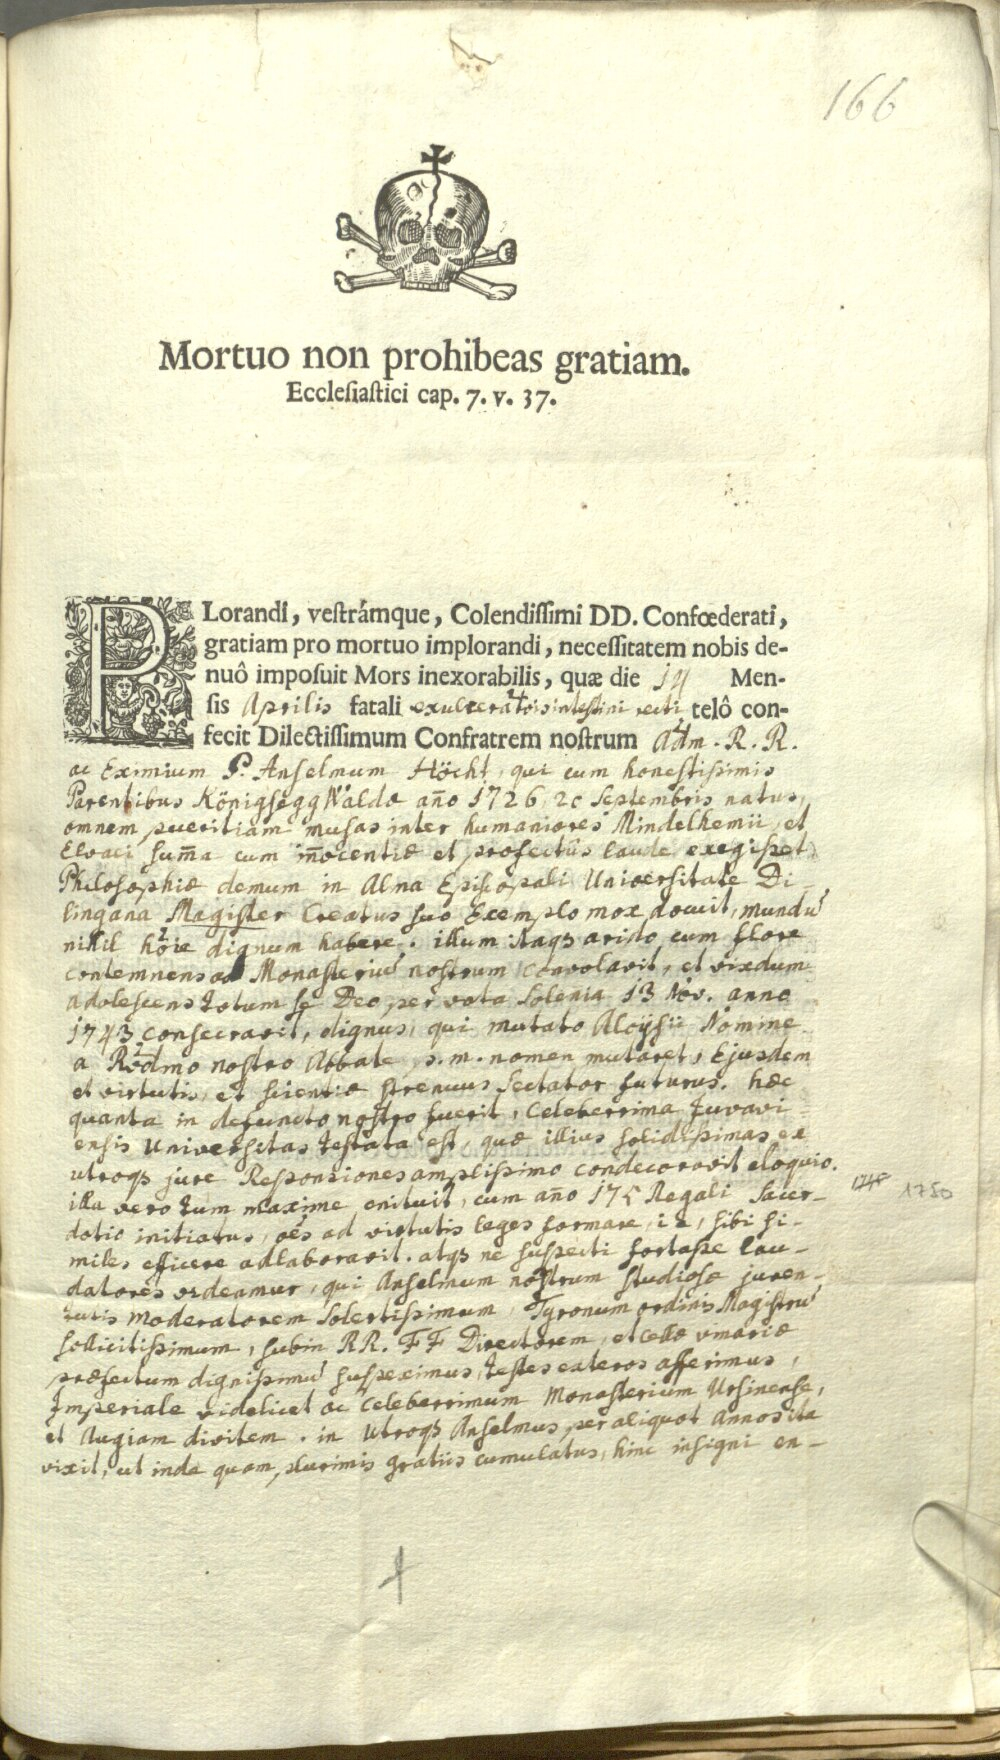 166
Mortuo non prohibeas gratiam.
Ecclesiastici cap. 7. v. 37.
PLorandi, vestrámque, Colendissimi DD. Confœderati,
gratiam pro mortuo implorandi, necessitatem nobis de-
nuô imposuit Mors inexorabilis, quæ die 14 Men-
sis Aprilis fatali exulceratōis intestini recti telô con-
fecit Dilectissimum Confratrem nostrum Adm. R. R.
ac Eximium P. Anselmum Höcht, qui cum honestissimis
Parentibus KönigseggWaldæ año 1726, 20 Septembris natus,
omnem pueritiam musas inter humaniores Mindelhemii, et
Elvaci sum̄a cum in̄ocentiæ et profectûs laude exegisset
Philosophiæ demum in Alma Episcopali Universitate Di-
lingana Magister Creatus suo Exemplo mox docuit, mundū
nihil hōie dignum habere. illum itaqz arido cum flore
contemnens ad Monasteriū nostrum convolavit, et vixdum
adolescens totum se Deo per vota Solenia 13 Nov. anno
1743 consecravit, dignus, qui mutato Aloÿsii Nomine
a Rṽdmo nostro Abbate p. m. nomen mutaret, Ejusdem
et virtutis, et scientiæ strenuus Sectator futurus. hæc
quanta in defuncto nostro fuerit, Celeberrima Juvavi-
ensis Universitas testata est, quæ illius solidissimas ex
utroqz jure Responsiones amplissimo condecoravit eloquio.
illa vero tum maxime enituit, cum año 175 Regali Sacer- 1748 1750
dotio initiatus, oēs ad virtutis leges formare, i e, sibi si-
miles efficere adlaboravit. atqz ne suspecti fortasse lau-
datores videamur, qui Anselmum nostrum studiosæ juven-
tutis moderatorem Solertissimum, Tyronum ordinis Magistrū
sollicitissimum, subin RR. FF Directorem, et Cellæ vinariæ
præfectum dignissimū suspeximus, testes cæteros afferimus,
Imperiale videlicet ac Celeberrimum Monasterium Ursinense,
et Augiam divitem. in Utroqz Anselmus per aliquot Annos ita
vixit, ut inde quam plurimis gratiis cumulatus, hinc insigni en-